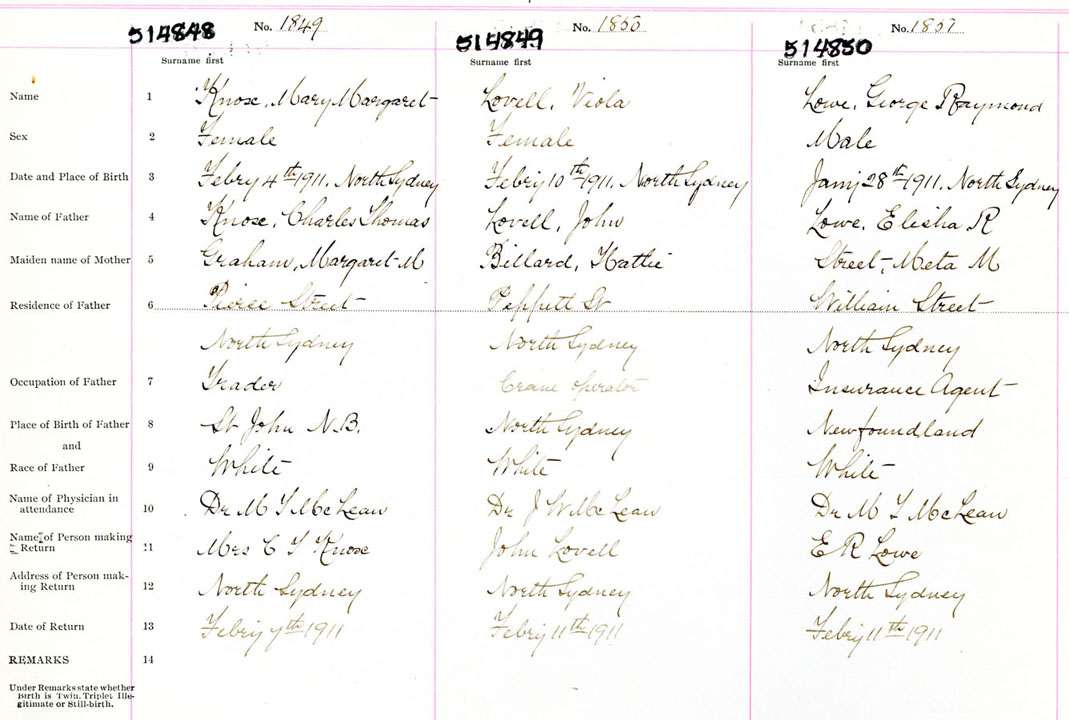 514848 No. 1849 514849 No. 1850 514850 No. 1851
Surname first Surname first Surname first
Name 1 Knose, Mary Margaret Lovell, Viola Lowe, George Raymond
Sex 2 Female Female Male
Date and Place of Birth 3 Febry 4th 1911, North Sydney Febry 10th 1911, North Sydney Janry 28th 1911, North Sydney
Name of Father 4 Knose, Charles Thomas Lovell, John Lowe, Elisha R
Maiden name of Mother 5 Graham, Margaret M Billard, Hattie Street, Meta M
Residence of Father 6 Pierce Street Peppett St William Street
North Sydney North Sydney North Sydney
Occupation of Father 7 Trader Crane operator Insurance Agent
Place of Birth of Father 8 St John N.B. North Sydney Newfoundland
and
Race of Father 9 White White White
Name of Physician in
attendance 10 Dr M T McLean Dr J W McLean Dr M T McLean
Name of Person making
Return 11 Mrs C T Knose John Lovell E R Lowe
Address of Person mak-
ing Return 12 North Sydney North Sydney North Sydney
Date of Return 13 Febry 7th 1911 Febry 11th 1911 Febry 11th 1911
REMARKS 14
Under Remarks state whether
Birth is Twin, Triplet, Ille-
gitimate or Still-birth.